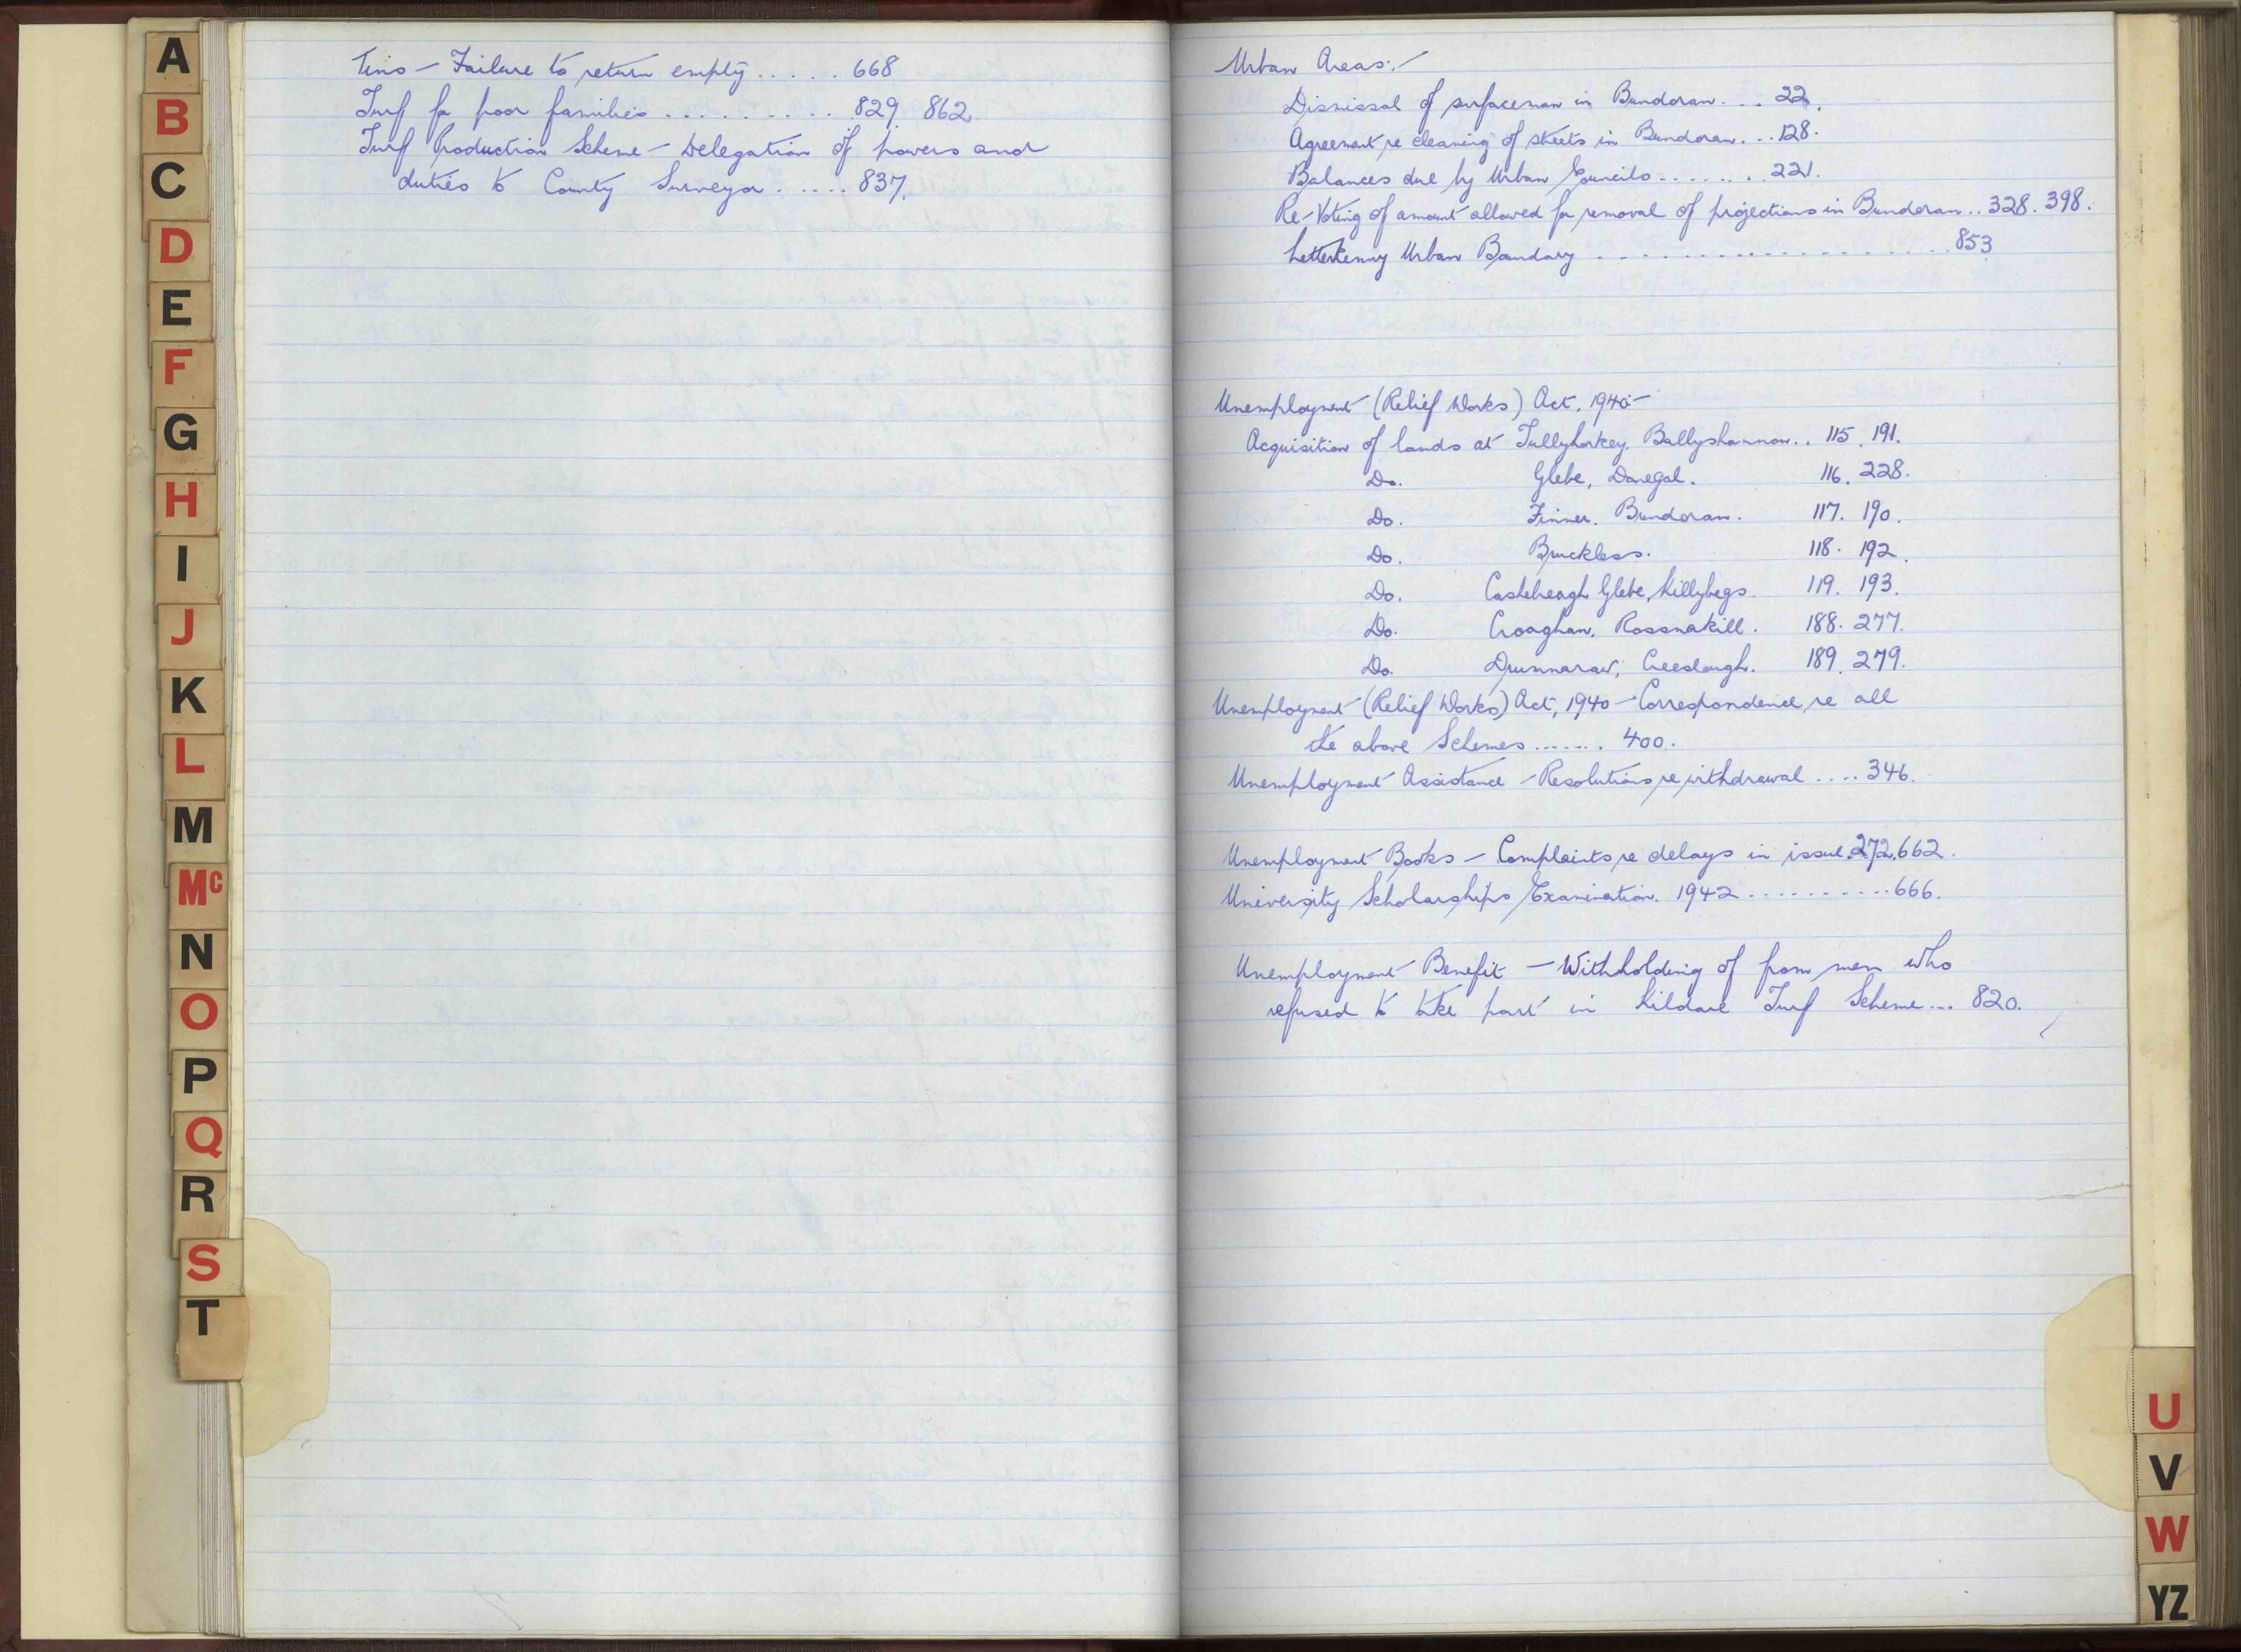 A
B
C
D
E
F
G
H
I
J
K
L
M
Mc
N
O
P
Q
R
S
T
Tins — Failure to return empty ..... 668
Turf for poor families .......... 829. 862.
Turf Production Scheme — Delegation of powers and
duties to County Surveyor ..... 837.
Urban Areas:-
Dismissal of surfaceman in Bundoran... 22.
Agreement re cleaning of streets in Bundoran... 128.
Balances due by Urban Councils ....... 221.
Re-Voting of amount allowed for removal of projections in Bundoran.. 328. 398.
Letterkenny Urban Boundary .................. 853
Unemployment (Relief Works) Act, 1940 -
Acquisition of lands at Tullyhorkey, Ballyshannon.. 115. 191.
Do. Glebe, Donegal. 116. 228.
Do. Finner. Bundoran. 117. 190.
Do. Bruckless. 118. 192.
Do. Castlereagh Glebe, Killybegs. 119. 193.
Do. Croaghan, Rossnakill. 188. 277.
Do. Drumnaraw, Creeslough. 189. 279.
Unemployment (Relief Works) Act, 1940 — Correspondence re all
the above Schemes ....... 400.
Unemployment Assistance — Resolutions re withdrawal .... 346.
Unemployment Books — Complaints re delays in issue. 272. 662.
University Scholarships Examination. 1942 .......... 666.
Unemployment Benefit — Withholding of from men who
refused to take part in Kildare Turf Scheme... 820.
U
V
W
YZ